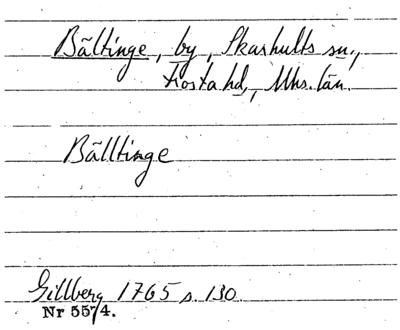 Bältinge, by, Skarhults sn.,
Frosta hd, Mhs. län.
Bälltinge
Gillberg 1765 s. 130
Nr 5574.